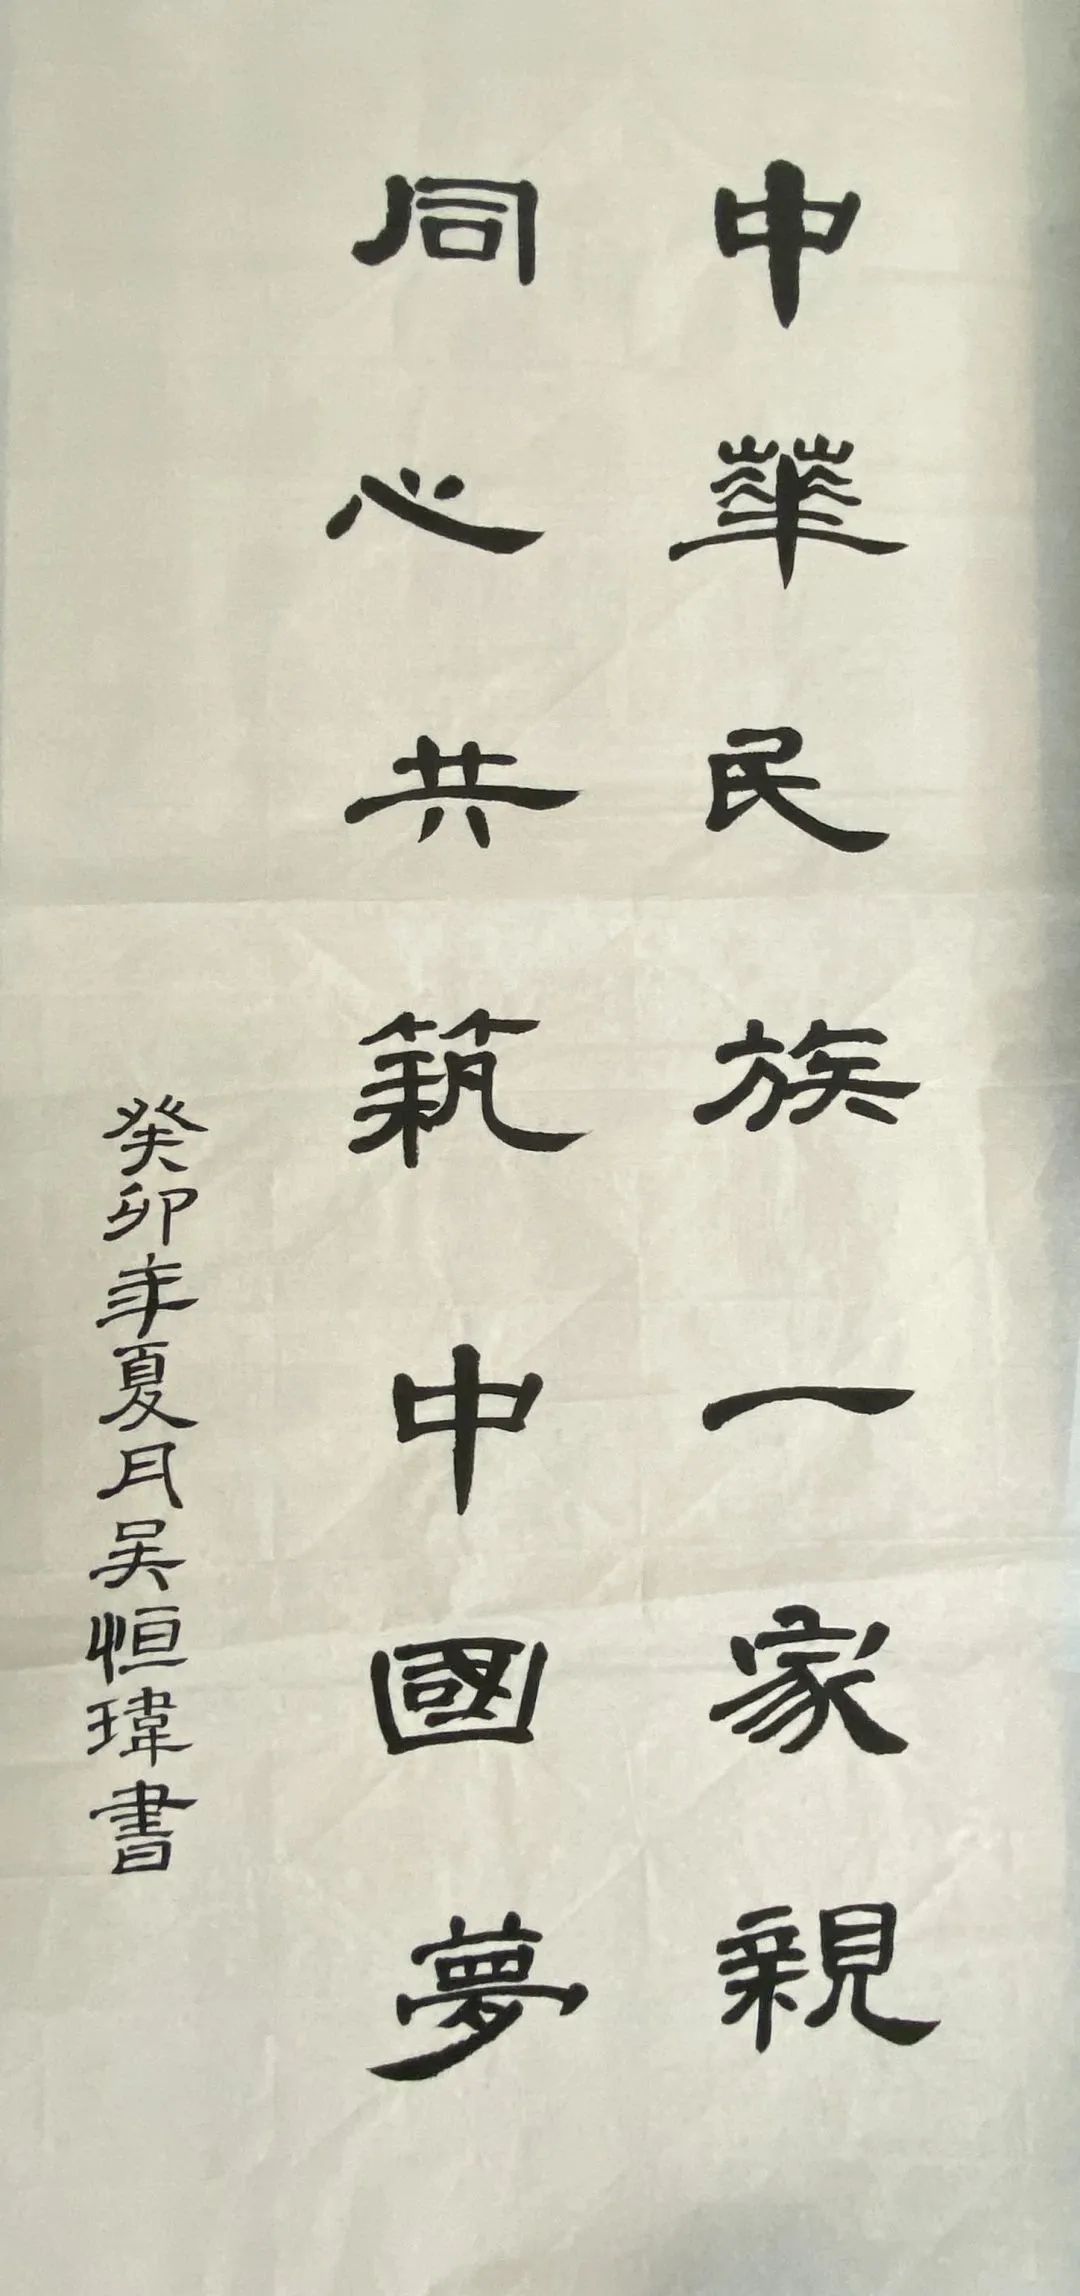 中華民族一家親
同心共築中國夢
癸卯年夏月吴恒瑋書